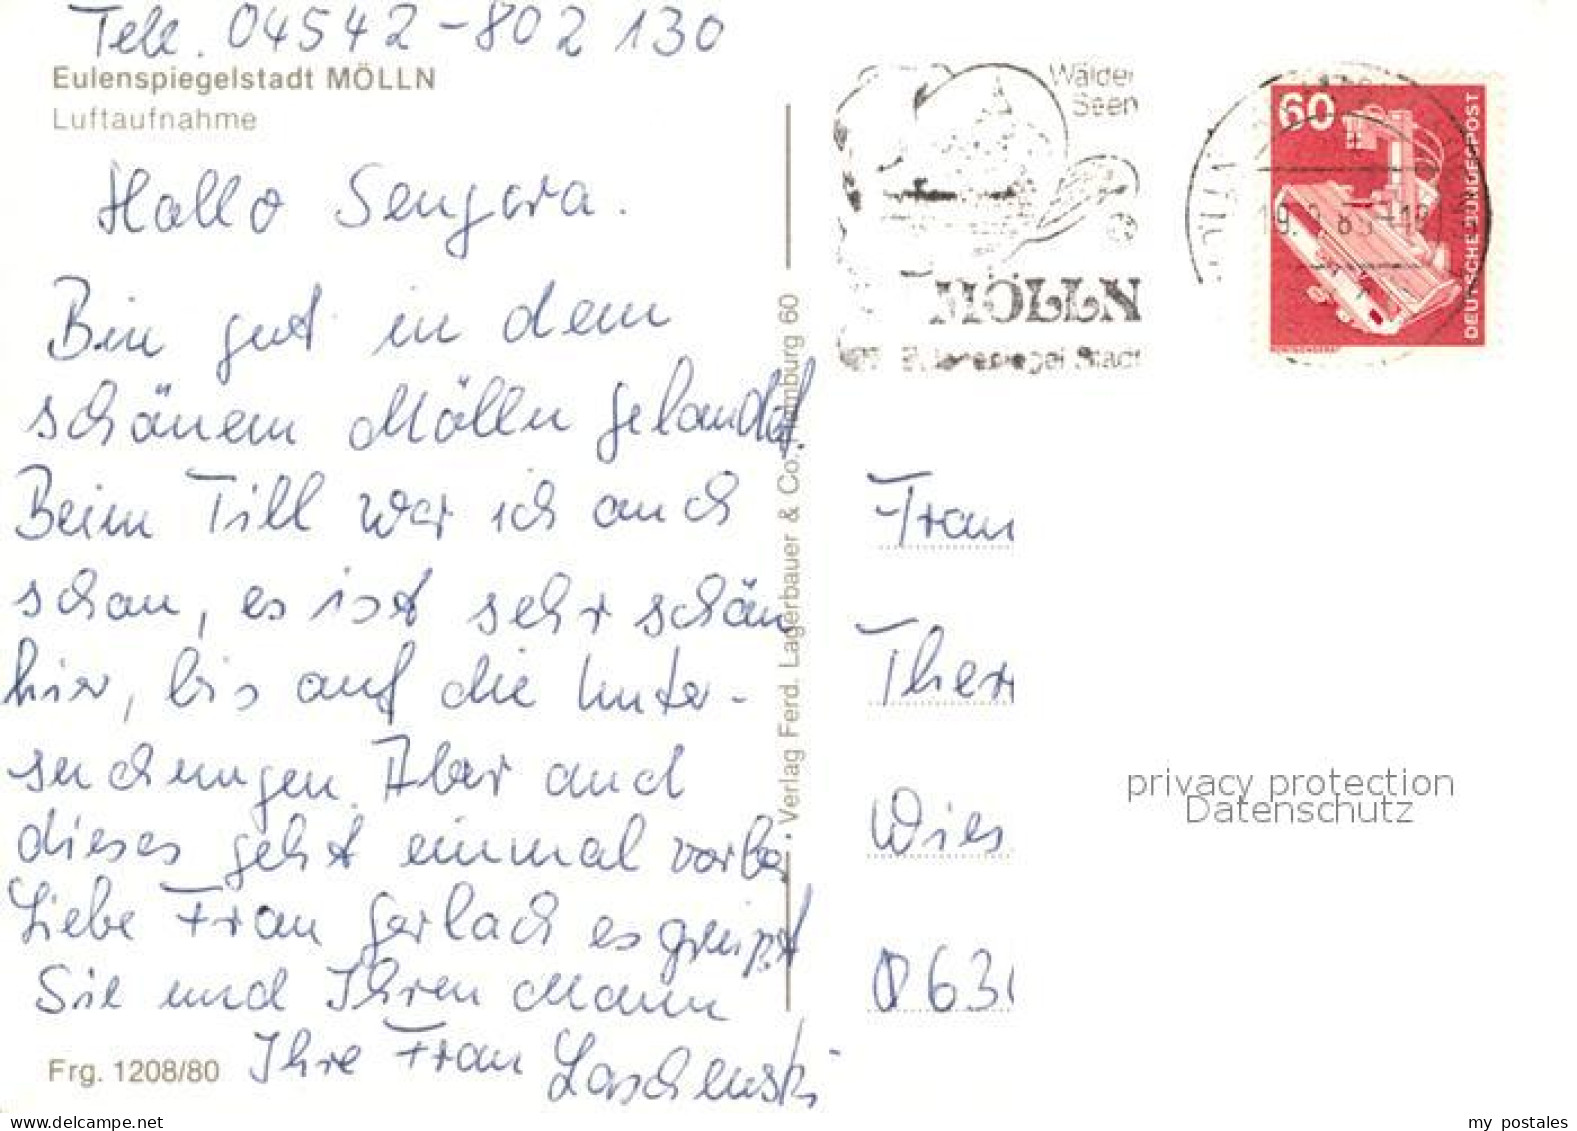 Tele. 04542-802 130
Eulenspiegelstadt MÖLLN
Luftaufnahme
Hallo
Bin gut in dem
schönem Mölln gelandet.
Beim Till war ich auch
schon, es ist sehr schön
hier, bis auf die Unter-
suchungen. Aber auch
dieses geht einmal vorbei
Liebe Frau Gerlach es grüßt
Sie und Ihren Mann
Ihre Frau
Frg. 1208/80
Verlag Ferd. Lagerbauer & Co. Hamburg 60
Wälder
Seen
MÖLLN
Eulenspiegel Stadt
60
DEUTSCHE BUNDESPOST
Frau
Ther
Wies
privacy protection
Datenschutz
www.delcampe.net
my_postales